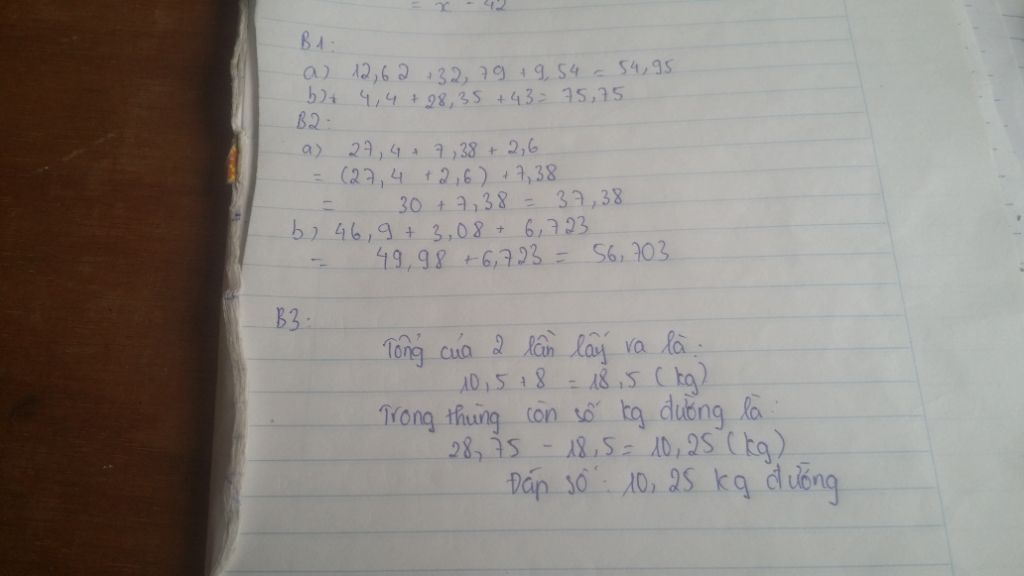 = x - 42
B1:
a) 12,62 + 32,79 + 9,54 = 54,95
b) 4,4 + 28,35 + 43 = 75,75
B2:
a) 27,4 + 7,38 + 2,6
= (27,4 + 2,6) + 7,38
= 30 + 7,38 = 37,38
b) 46,9 + 3,08 + 6,723
= 49,98 + 6,723 = 56,703
B3:
Tổng của 2 lần lấy ra là:
10,5 + 8 = 18,5 (kg)
Trong thùng còn số kg đường là:
28,75 - 18,5 = 10,25 (kg)
Đáp số: 10,25 kg đường